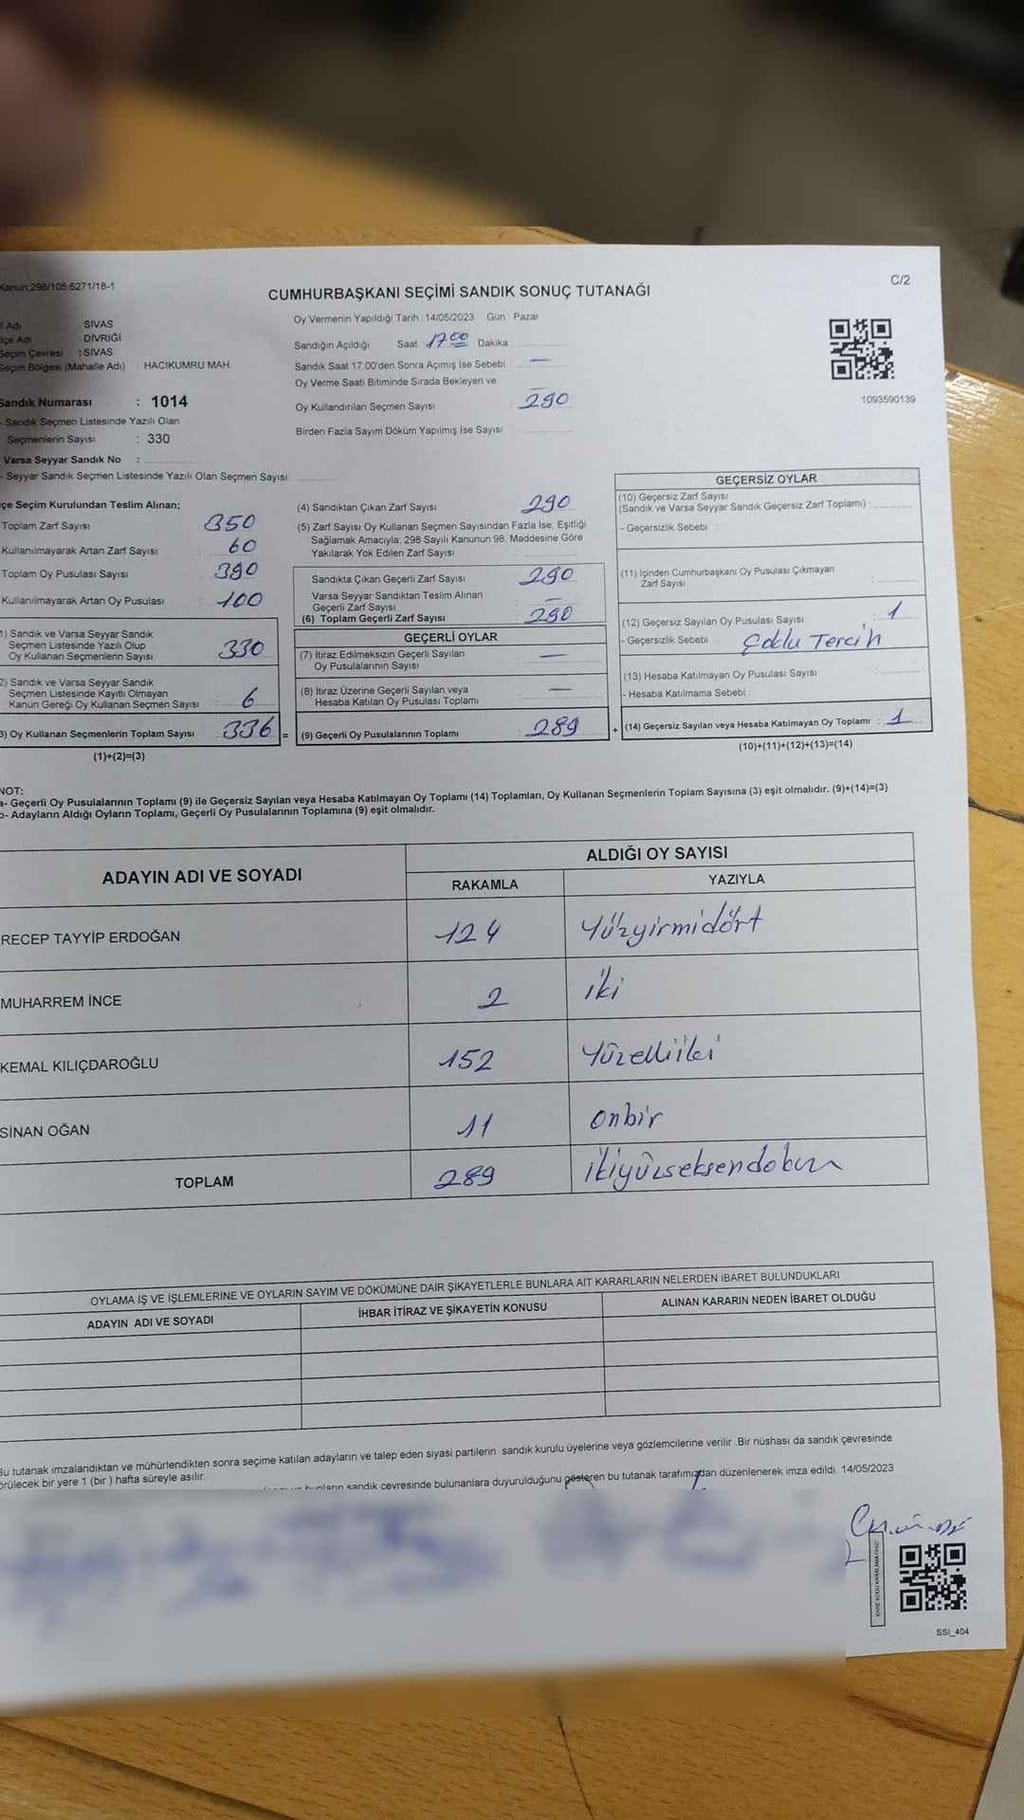 Kanun;298/105;6271/18-1
C/2
CUMHURBAŞKANI SEÇİMİ SANDIK SONUÇ TUTANAĞI
Adı SİVAS
Adı DİVRİĞİ
Seçim Çevresi : SİVAS
Seçim Bölgesi (Mahalle Adı) : HACIKUMRU MAH.
Sandık Numarası : 1014
- Sandık Seçmen Listesinde Yazılı Olan
Seçmenlerin Sayısı : 330
Varsa Seyyar Sandık No :
- Seyyar Sandık Seçmen Listesinde Yazılı Olan Seçmen Sayısı
Oy Vermenin Yapıldığı Tarih : 14/05/2023 Gün : Pazar
Sandığın Açıldığı Saat 17.00 Dakika
Sandık Saat 17.00'den Sonra Açımış İse Sebebi : —
Oy Verme Saati Bitiminde Sırada Bekleyen ve
Oy Kullandırılan Seçmen Sayısı : 290
Birden Fazla Sayım Döküm Yapılmış İse Sayısı :
1093590139
çe Seçim Kurulundan Teslim Alınan;
Toplam Zarf Sayısı 350
Kullanılmayarak Artan Zarf Sayısı : 60
Toplam Oy Pusulası Sayısı : 390
Kullanılmayarak Artan Oy Pusulası : 100
1) Sandık ve Varsa Seyyar Sandık
Seçmen Listesinde Yazılı Olup
Oy Kullanan Seçmenlerin Sayısı 330
2) Sandık ve Varsa Seyyar Sandık
Seçmen Listesinde Kayıtlı Olmayan
Kanun Gereği Oy Kullanan Seçmen Sayısı : 6
3) Oy Kullanan Seçmenlerin Toplam Sayısı : 336 =
(1)+(2)=(3)
(4) Sandıktan Çıkan Zarf Sayısı : 290
(5) Zarf Sayısı Oy Kullanan Seçmen Sayısından Fazla İse, Eşitliği
Sağlamak Amacıyla; 298 Sayılı Kanunun 98. Maddesine Göre
Yakılarak Yok Edilen Zarf Sayısı :
Sandıkta Çıkan Geçerli Zarf Sayısı : 290
Varsa Seyyar Sandıktan Teslim Alınan
Geçerli Zarf Sayısı : —
(6) Toplam Geçerli Zarf Sayısı : 290
GEÇERLİ OYLAR
(7) İtiraz Edilmeksizin Geçerli Sayılan
Oy Pusulalarının Sayısı : —
(8) İtiraz Üzerine Geçerli Sayılan veya
Hesaba Katılan Oy Pusulası Toplamı : —
(9) Geçerli Oy Pusulalarının Toplamı : 289 +
GEÇERSİZ OYLAR
(10) Geçersiz Zarf Sayısı
(Sandık ve Varsa Seyyar Sandık Geçersiz Zarf Toplamı) :
- Geçersizlik Sebebi :
(11) İçinden Cumhurbaşkanı Oy Pusulası Çıkmayan
Zarf Sayısı :
(12) Geçersiz Sayılan Oy Pusulası Sayısı : 1
- Geçersizlik Sebebi : Çoklu Tercih
(13) Hesaba Katılmayan Oy Pusulası Sayısı :
- Hesaba Katılmama Sebebi :
(14) Geçersiz Sayılan veya Hesaba Katılmayan Oy Toplamı : 1
(10)+(11)+(12)+(13)=(14)
NOT:
a- Geçerli Oy Pusulalarının Toplamı (9) ile Geçersiz Sayılan veya Hesaba Katılmayan Oy Toplamı (14) Toplamları, Oy Kullanan Seçmenlerin Toplam Sayısına (3) eşit olmalıdır. (9)+(14)=(3)
b- Adayların Aldığı Oyların Toplamı, Geçerli Oy Pusulalarının Toplamına (9) eşit olmalıdır.
ADAYIN ADI VE SOYADI
ALDIĞI OY SAYISI
RAKAMLA YAZIYLA
RECEP TAYYİP ERDOĞAN 124 Yüzyirmidört
MUHARREM İNCE 2 iki
KEMAL KILIÇDAROĞLU 152 Yüzelliiki
SİNAN OĞAN 11 onbir
TOPLAM 289 ikiyüzseksendokuz
OYLAMA İŞ VE İŞLEMLERİNE VE OYLARIN SAYIM VE DÖKÜMÜNE DAİR ŞİKAYETLERLE BUNLARA AİT KARARLARIN NELERDEN İBARET BULUNDUKLARI
ADAYIN ADI VE SOYADI İHBAR İTİRAZ VE ŞİKAYETİN KONUSU ALINAN KARARIN NEDEN İBARET OLDUĞU
Bu tutanak imzalandıktan ve mühürlendikten sonra seçime katılan adayların ve talep eden siyasi partilerin sandık kurulu üyelerine veya gözlemcilerine verilir. Bir nüshası da sandık çevresinde
örülecek bir yere 1 (bir) hafta süreyle asılır.
bunların sandık çevresinde bulunanlara duyurulduğunu gösteren bu tutanak tarafımızdan düzenlenerek imza edildi. 14/05/2023
SSI_404